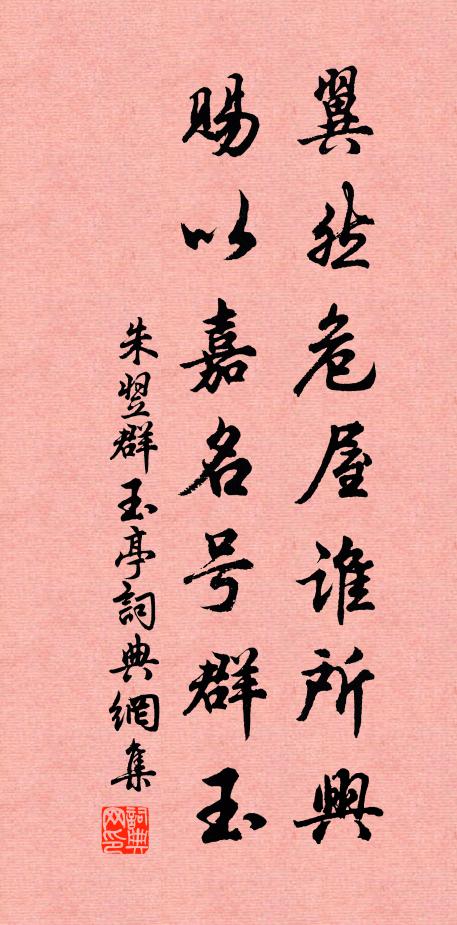 翼然危屋谁所興
賜以嘉名号群玉
朱翌群玉亭詞典網集
詞典网印